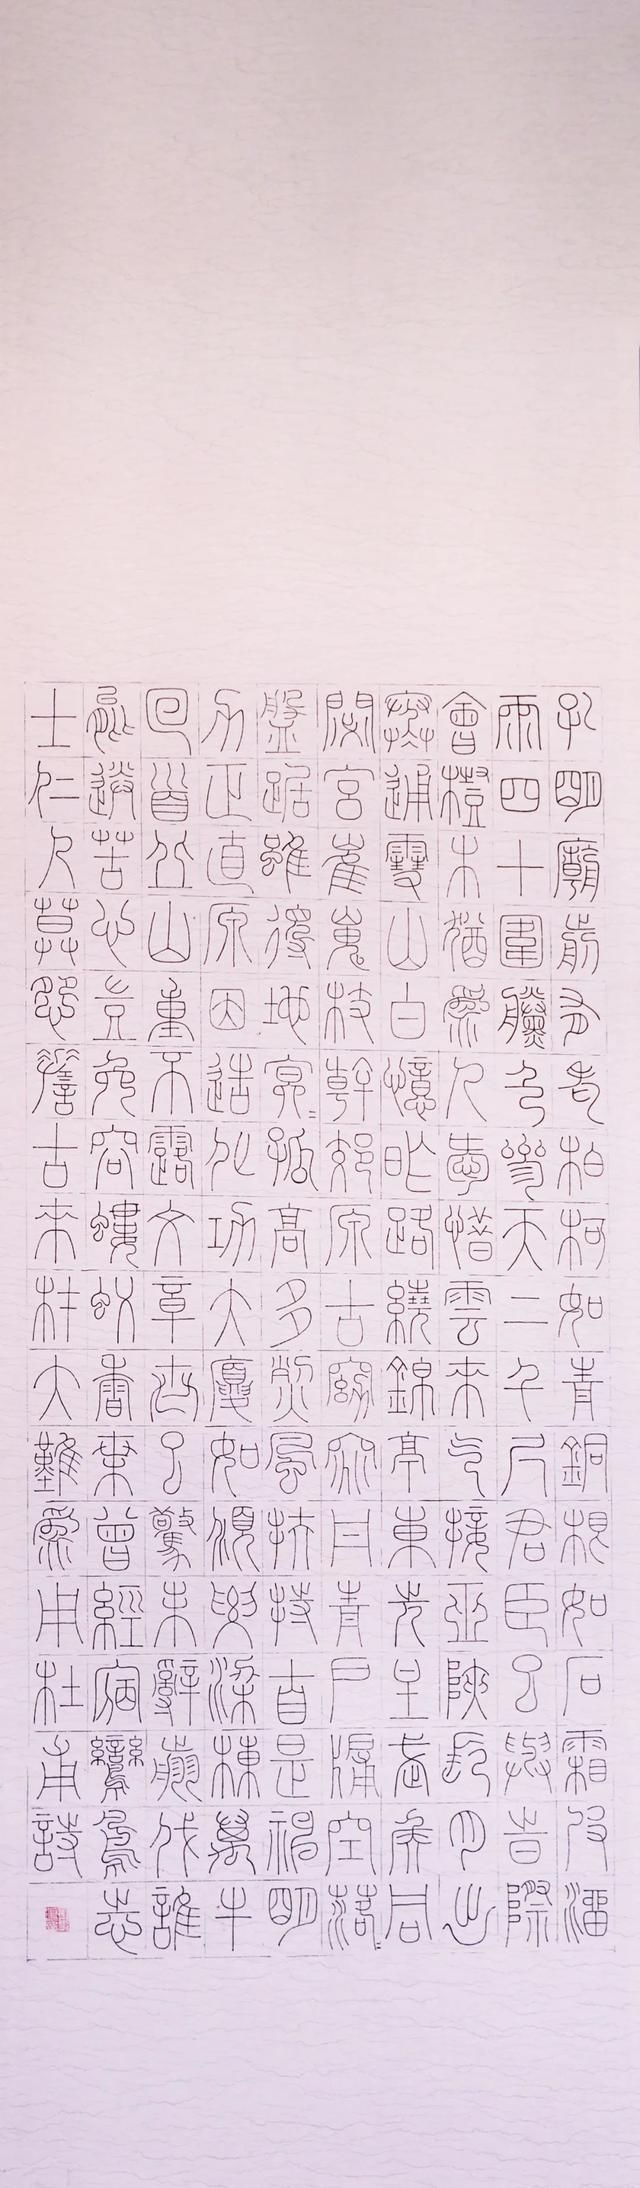 孔明廟前有老柏柯如青銅根如石霜皮溜
雨四十圍黛色參天二千尺君臣已與時際
會樹木猶為人愛惜雲來氣接巫峽長月出
寒通雪山白憶昨路繞錦亭東先主武侯同
閟宮崔嵬枝幹郊原古窈窕丹青戶牖空落〻
盤踞雖得地冥〻孤高多烈風扶持自是神明
力正直原因造化功大廈如傾要梁棟萬牛
回首丘山重不露文章世已驚未辭翦伐誰
能送苦心豈免容螻蟻香葉曾經宿鸞鳳志
士仁人莫怨嗟古來材大難為用杜甫詩